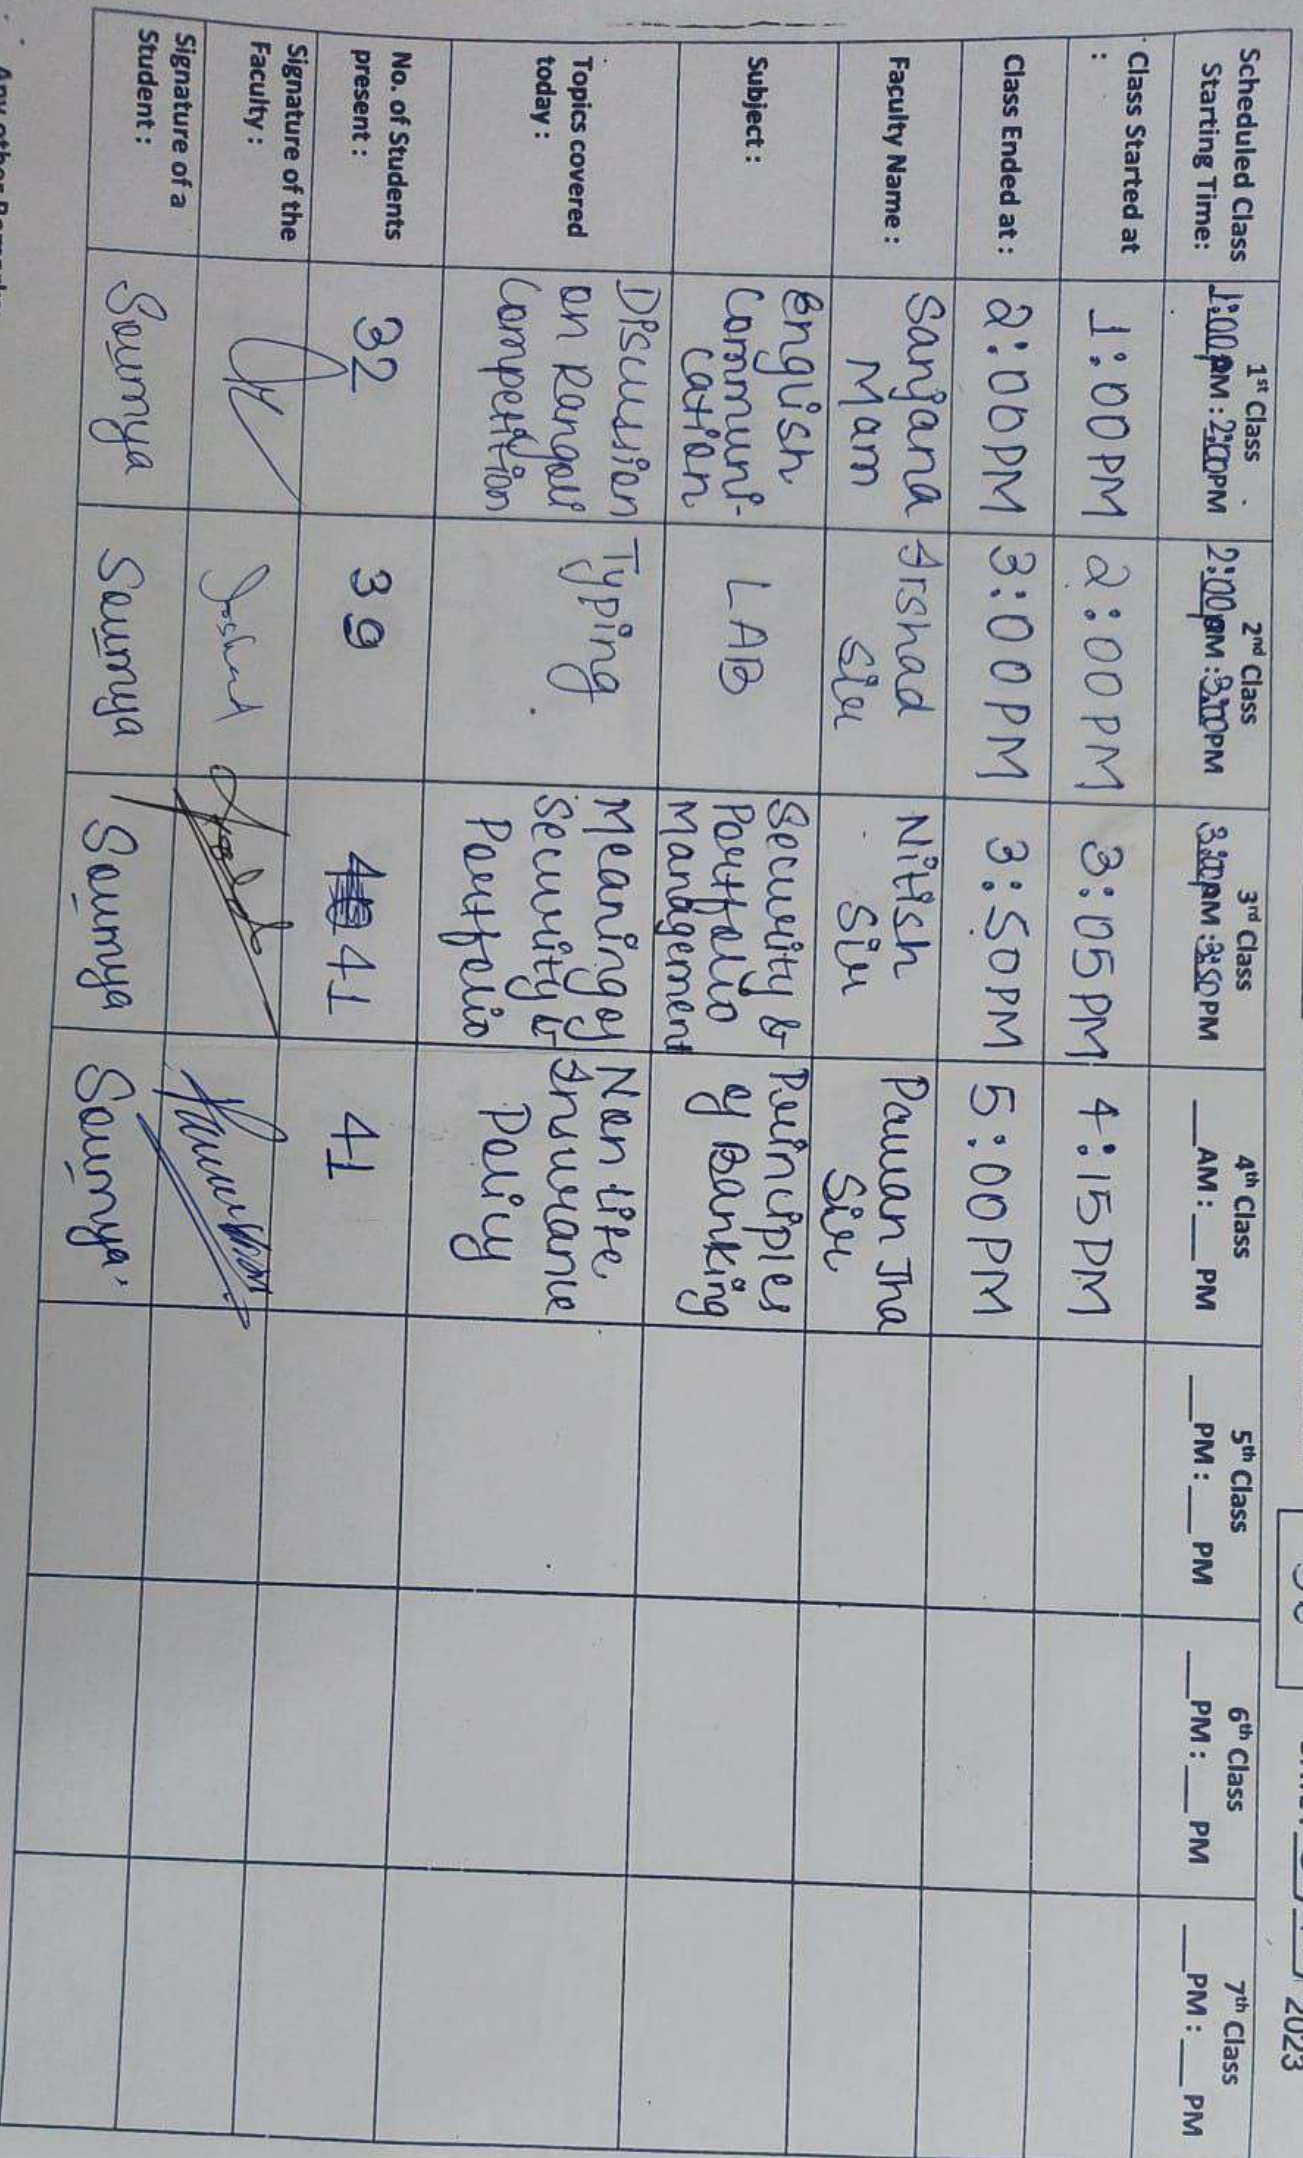 2023
Scheduled Class Starting Time:
1st Class
1:00PM : 2:00PM
2nd Class
2:00PM : 3:00PM
3rd Class
3:00PM : 3:50PM
4th Class
__AM : __ PM
5th Class
__PM : __ PM
6th Class
__PM : __ PM
7th Class
__PM : __ PM
Class Started at :
1:00PM
2:00PM
3:05PM
4:15PM
Class Ended at :
2:00PM
3:00PM
3:50PM
5:00PM
Faculty Name :
Sanjana
Mam
Arshad
Sir
Nitish
Sir
Pawan Jha
Sir
Subject :
English
Communi-
cation
LAB
Security &
Portfolio
Management
Principles
of Banking
Topics covered
today :
Discussion
on Rangoli
Competition
Typing
Meaning of
Security &
Portfolio
Non Life
Insurance
Policy
No. of Students
present :
32
39
41
41
Signature of the
Faculty :
Signature of a
Student :
Soumya
Soumya
Soumya
Soumya
Any other